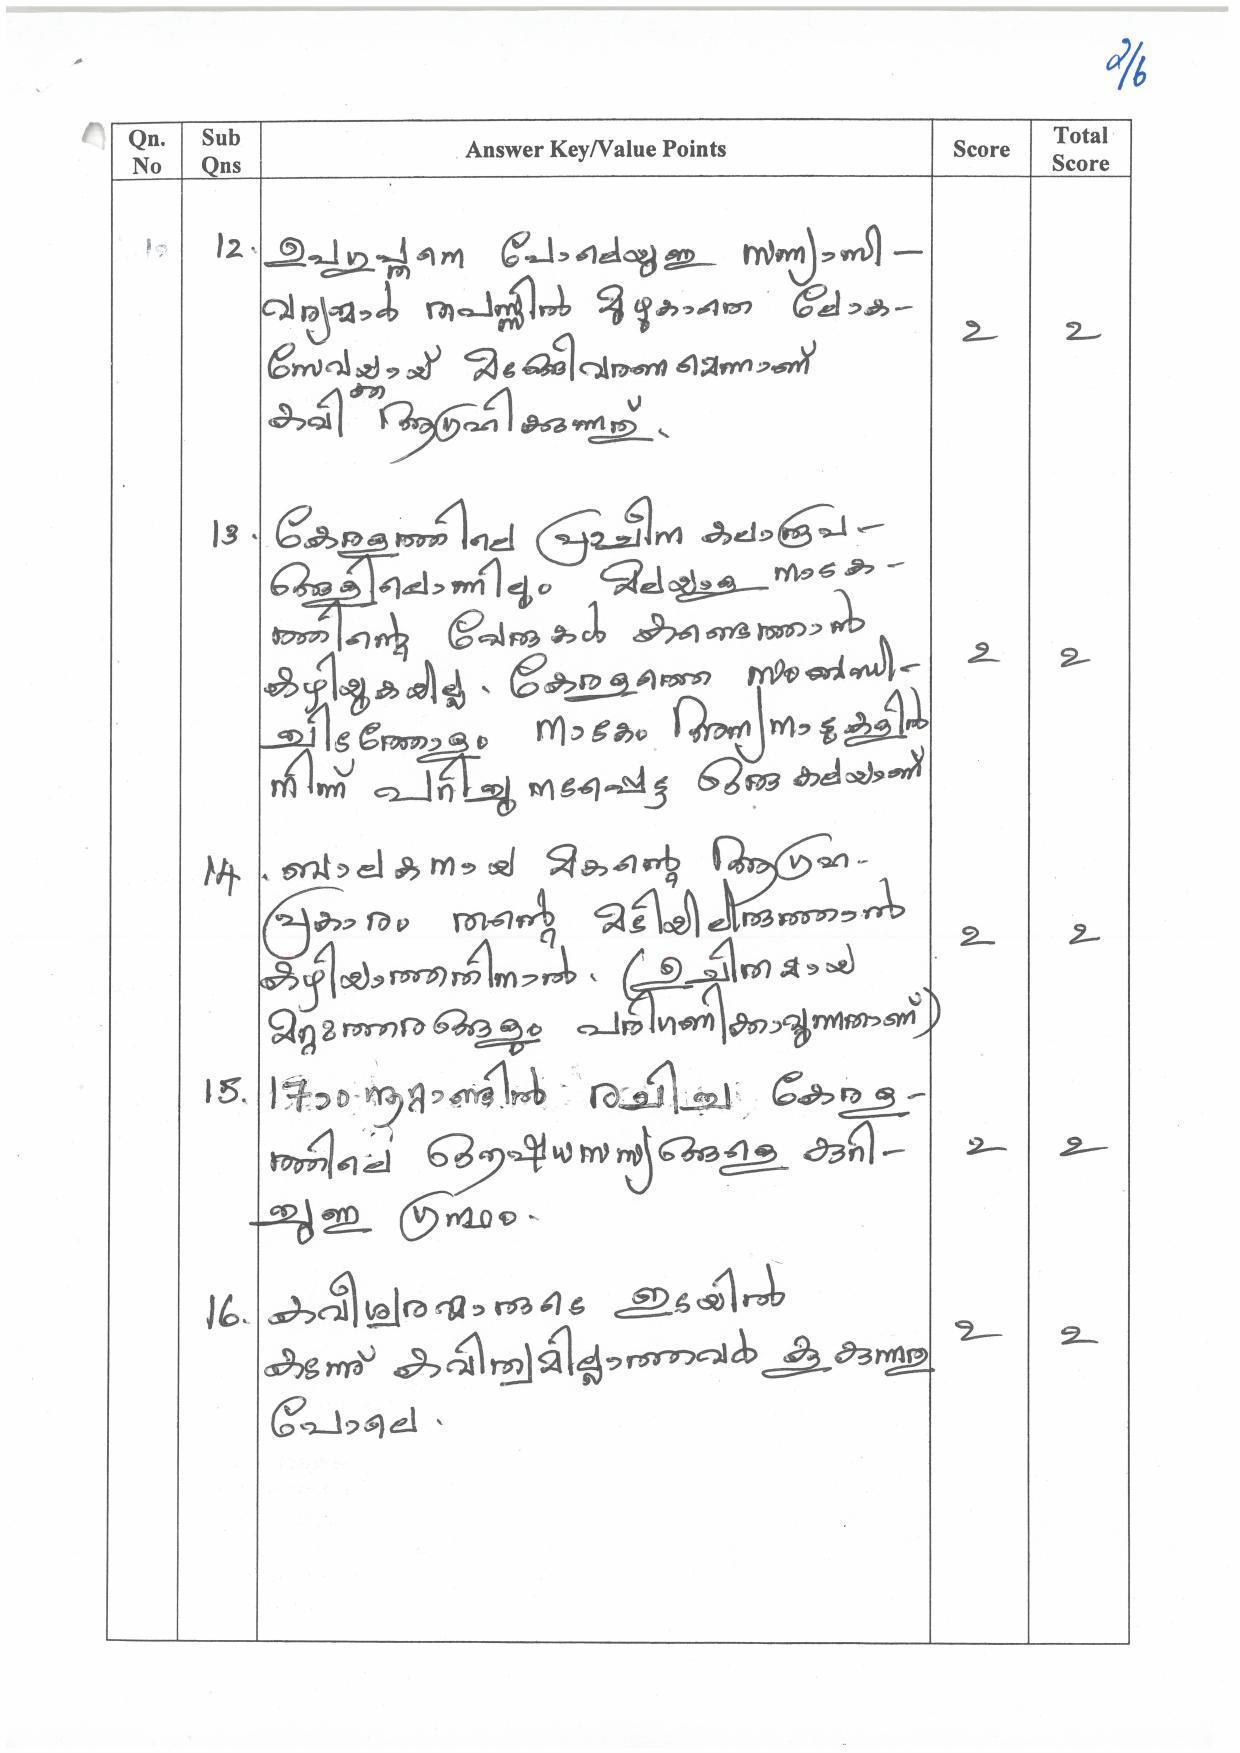 2/6
Qn. No | Sub Qns | Answer Key/Value Points | Score | Total Score
12. ഉപഗുപ്തനെ പോലെയുള്ള സന്ന്യാസി-
വര്യന്മാർ തപസ്സിൽ മുഴുകാതെ ലോക-
സേവയ്ക്കായ് മടങ്ങിവരണമെന്നാണ് 2 2
കവി ആഗ്രഹിക്കുന്നത്.
13. കേരളത്തിലെ പ്രാചീന കലാരൂപ-
ങ്ങളിലൊന്നിലും മലയാള നാടക-
ത്തിന്റെ വേരുകൾ കണ്ടെത്താൻ
കഴിയുകയില്ല. കേരളത്തെ സംബന്ധി- 2 2
ച്ചിടത്തോളം നാടകം അന്യനാടുകളിൽ
നിന്ന് പറിച്ചു നടപ്പെട്ട ഒരു കലയാണ്
14. ബാലകനായ മകന്റെ ആഗ്രഹ-
പ്രകാരം തന്റെ മടിയിലിരുത്താൻ 2 2
കഴിയാത്തതിനാൽ. (ഉചിതമായ
മറ്റുത്തരങ്ങളും പരിഗണിക്കാവുന്നതാണ്)
15. 17ാം നൂറ്റാണ്ടിൽ രചിച്ച കേരള-
ത്തിലെ ഔഷധസസ്യങ്ങളെ കുറി- 2 2
ച്ചുള്ള ഗ്രന്ഥം.
16. കവീശ്വരന്മാരുടെ ഇടയിൽ 2 2
കടന്ന് കവിത്വമില്ലാത്തവർ കൂകുന്നതു
പോലെ.